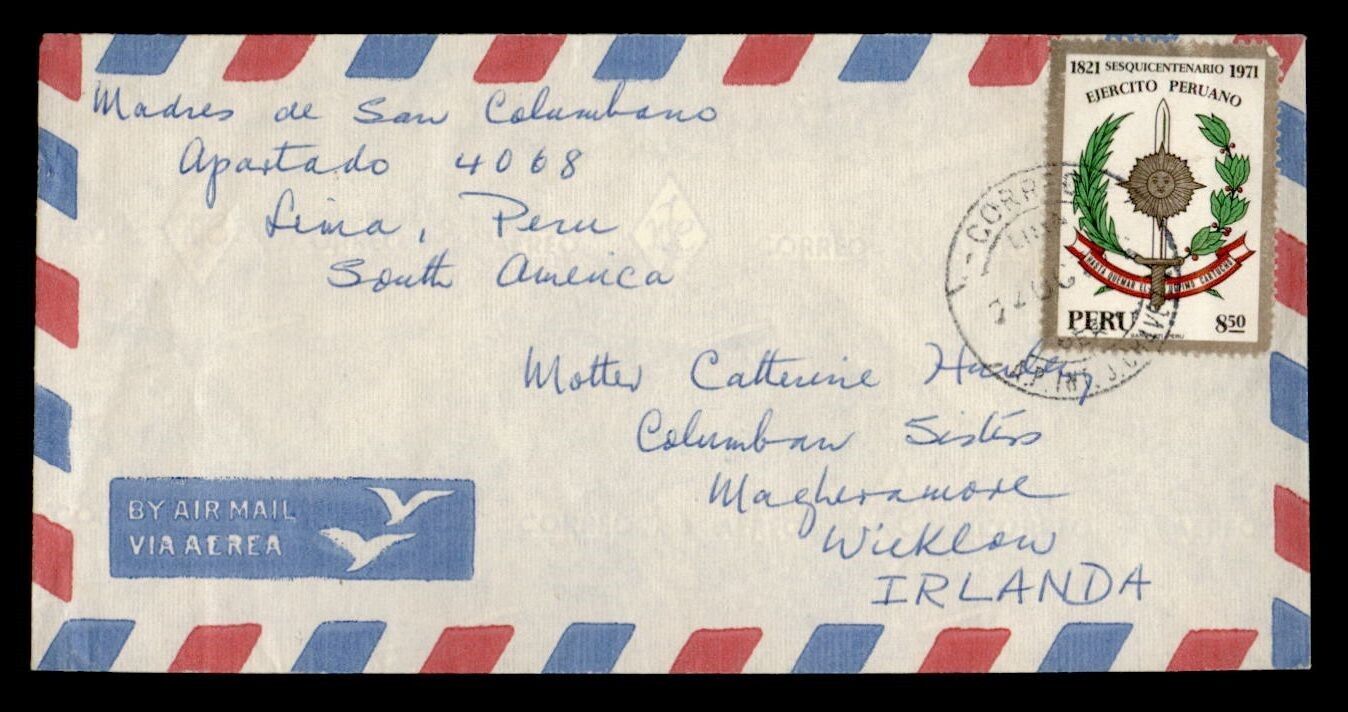 Madres de San Columbano
Apartado 4068
Lima, Peru
South America
1821 SESQUICENTENARIO 1971
EJERCITO PERUANO
HASTA QUEMAR EL ULTIMO CARTUCHO
PERU 850
CORREO
LIMA
Mother Catherine
Columban Sisters
Magheramore
Wicklow
IRLANDA
BY AIR MAIL
VIA AEREA